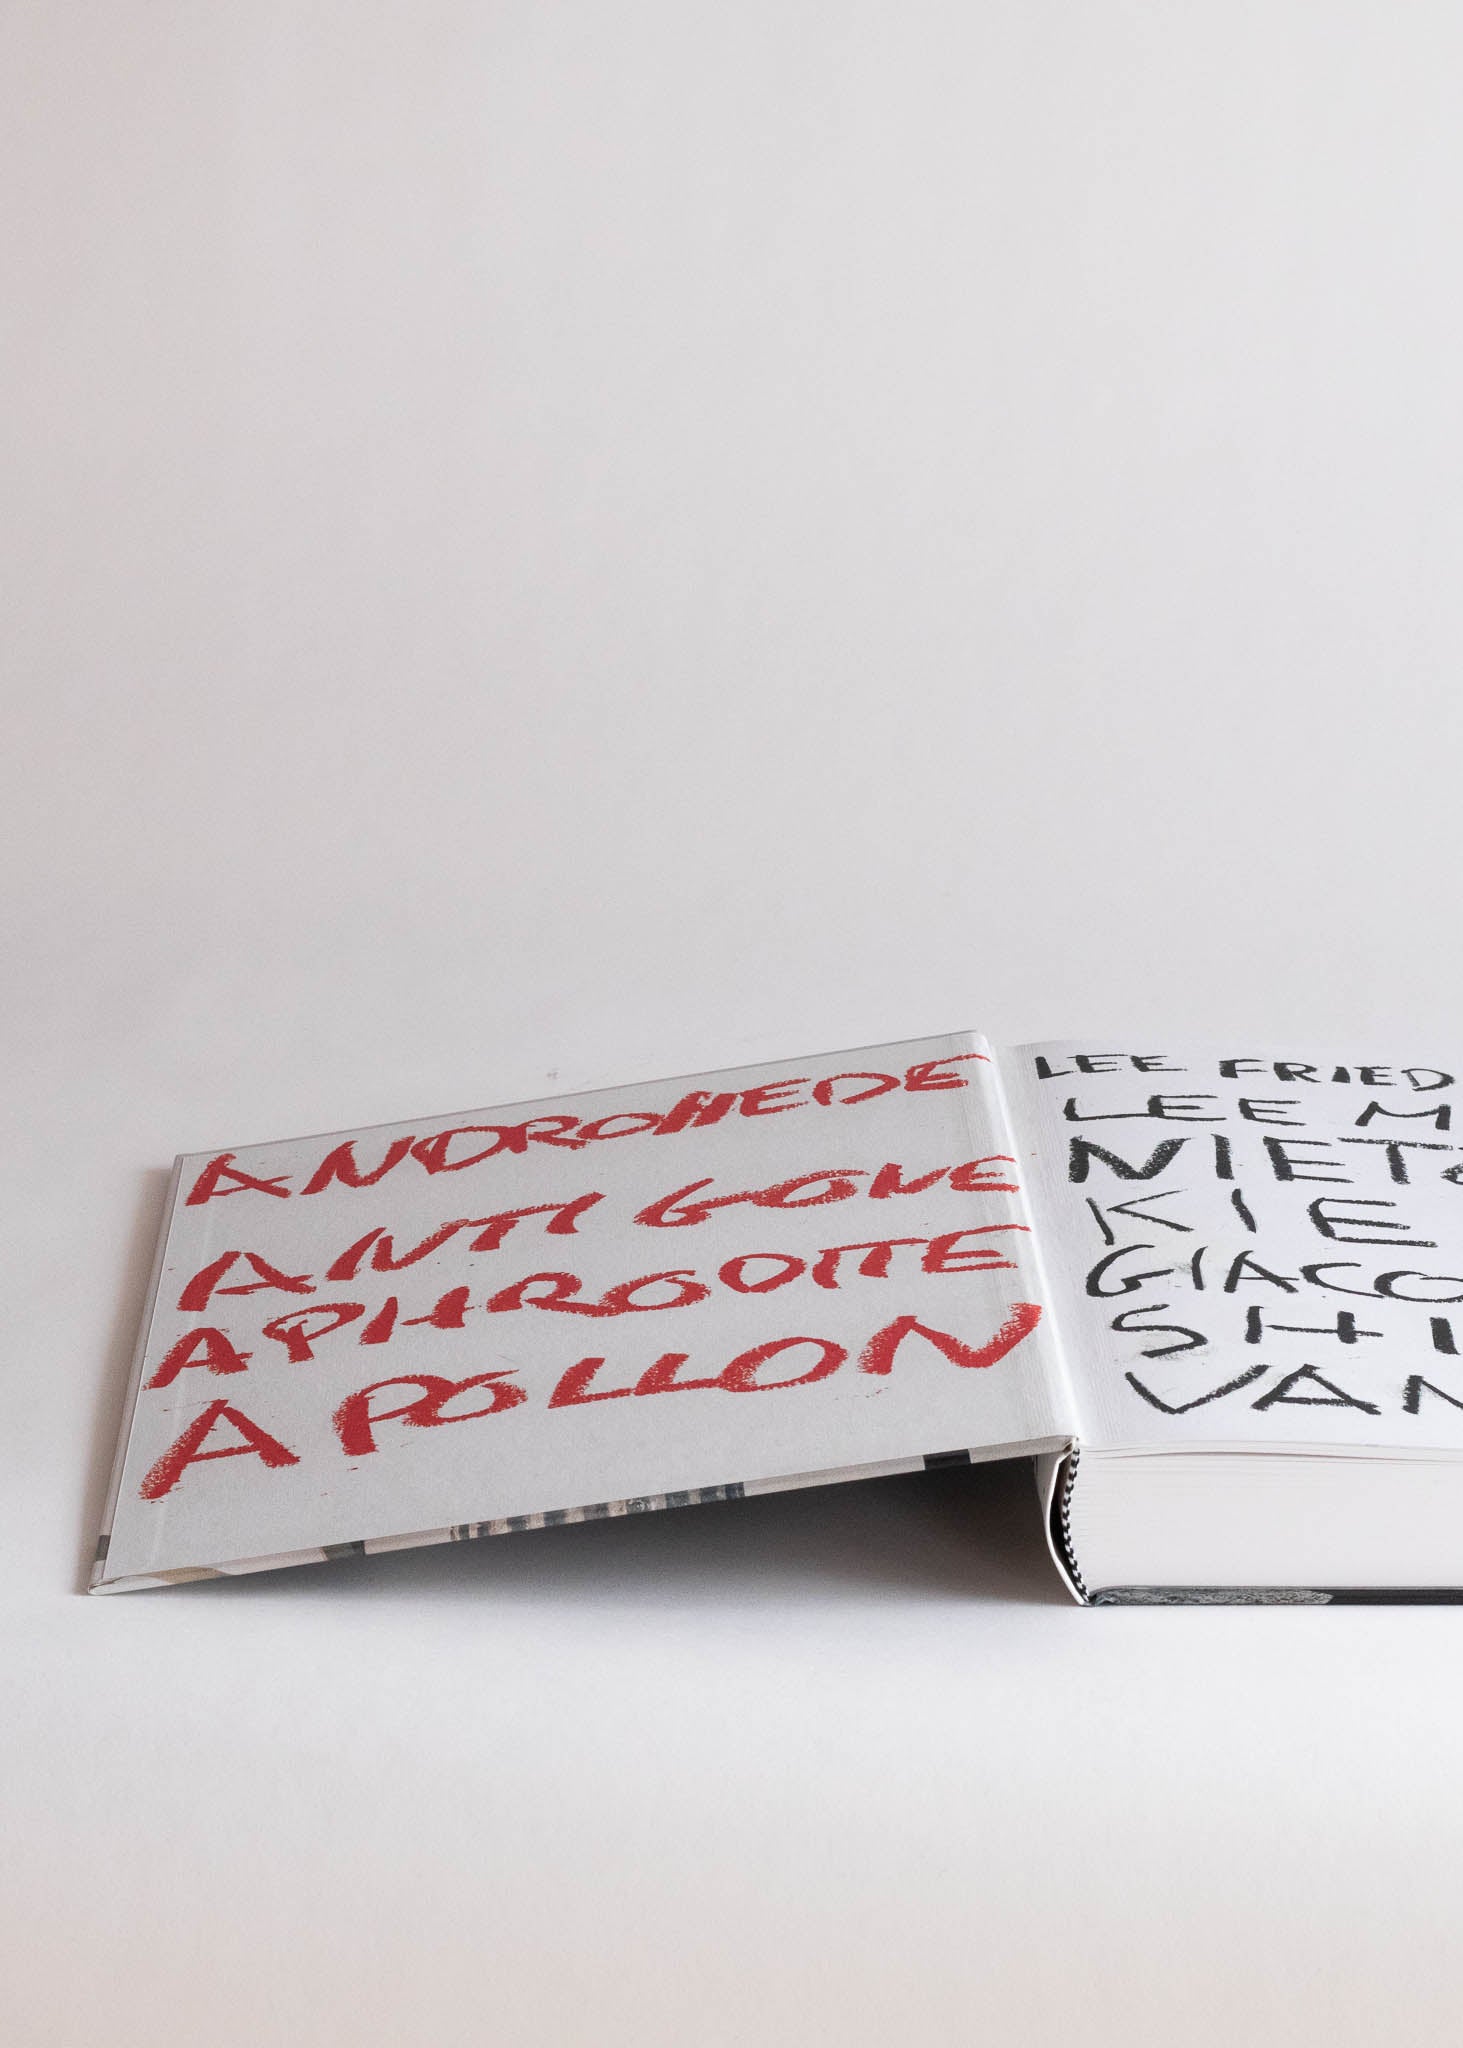 ANDROMEDE
ANTIGONE
APHRODITE
APOLLON
LEE FRIED
LEE M
NIETZ
KIE
GIACO
SHI
VAN